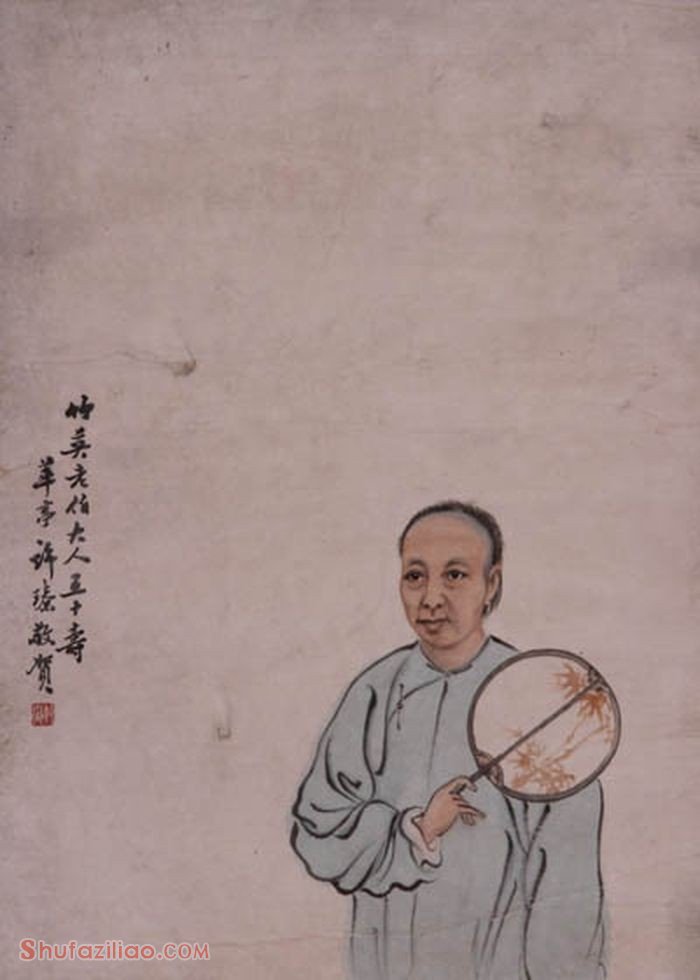 竹英老伯大人五十壽
華亭許臻敬賀
Shufaziliao.com